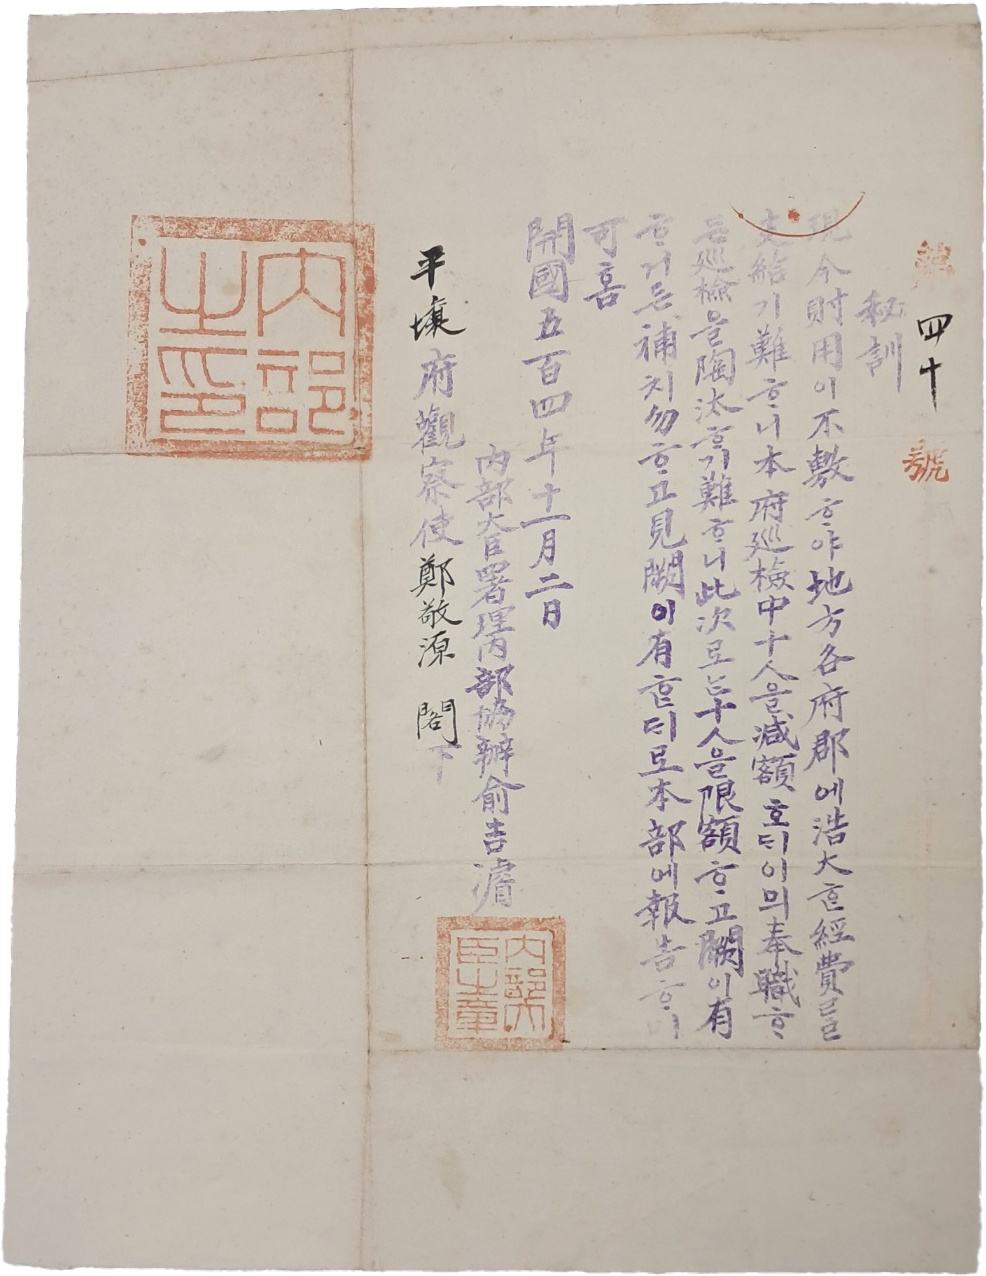 號 四十 號
秘訓
現今財用이不敷ᄒᆞ야地方各府郡에浩大ᄒᆞᆫ經費ᄅᆞᆯ
支給기難ᄒᆞ니本府巡檢中十人을減額호ᄃᆡ이믜奉職ᄒᆞ
ᄂᆞᆫ巡檢을陶汰ᄒᆞ기難ᄒᆞ니此次로ᄂᆞᆫ十人을限額ᄒᆞ고闕이有
ᄒᆞ거든補치勿ᄒᆞ고見闕이有ᄒᆞᆫᄃᆡ로本部에報告ᄒᆞ미
可홈
開國五百四年十一月二日
內部大臣署理內部協辦俞吉濬
平壤府觀察使鄭敬源 閣下
內部之印
內部大臣之章